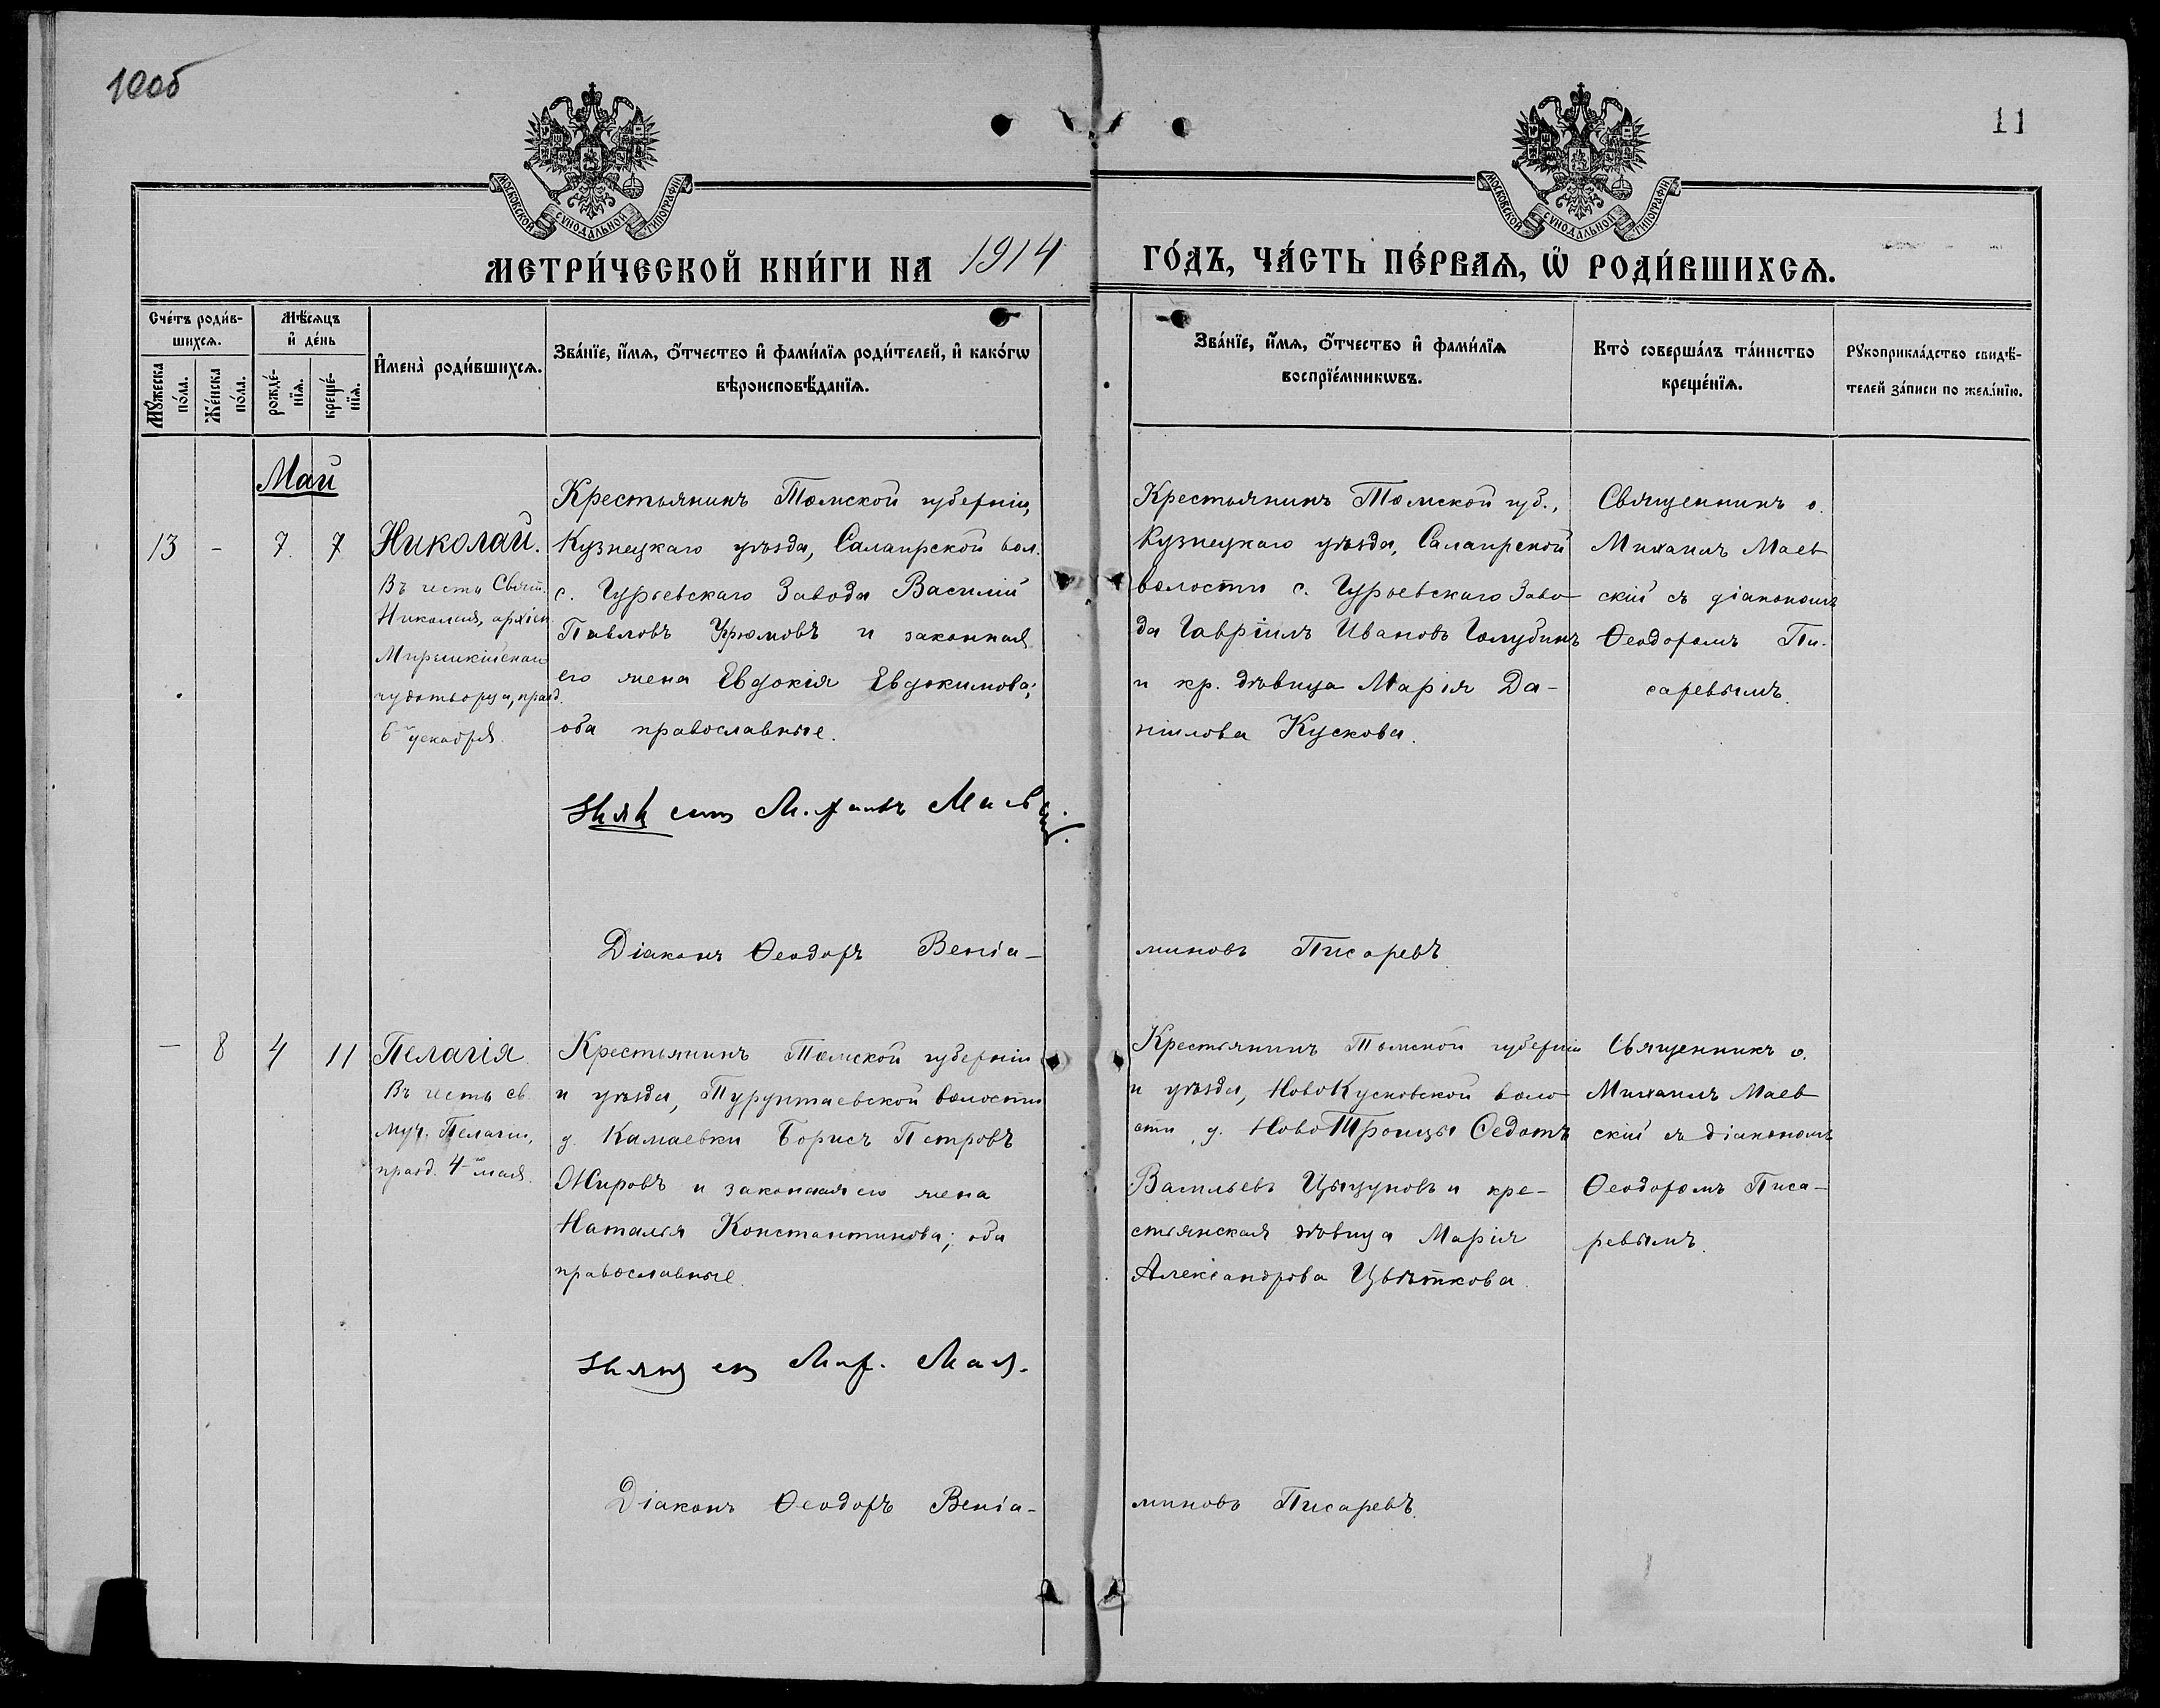 10об
11
МОСКОВСКОЙ СѴНОДАЛЬНОЙ ТИПОГРАФІИ
МОСКОВСКОЙ СѴНОДАЛЬНОЙ ТИПОГРАФІИ
МЕТРИ́ЧЕСКОЙ КНИ́ГИ НА 1914 ГО́ДЪ, ЧА́СТЬ ПЕ́РВАѦ, Ѡ҆ РОДИ́ВШИХСѦ.
Сче́тъ роди́в-
шихсѧ.
Мꙋ́жеска
по́ла.
Же́нска
по́ла.
Мѣ́сѧцъ
и҆ де́нь
рожде́-
нїѧ.
креще́-
нїѧ.
И҆мена̀ роди́вшихсѧ.
Зва́нїе, и҆́мѧ, ѻ҆́тчество и҆ фами́лїѧ роди́телей, и҆ како́гѡ
вѣроисповѣ́данїѧ.
Зва́нїе, и҆́мѧ, ѻ҆́тчество и҆ фами́лїѧ
воспрїе́мникѡвъ.
Кто̀ соверша́лъ та́инство
креще́нїѧ.
Рꙋкоприкла́дство свидѣ́-
телей за́писи по жела́нїю.
Май
13 - 7. 7
Николай.
Въ честь Свят.
Николая, архіеп.
Мирликійскаго
чудотворца, празд.
6го декабря.
Крестьянинъ Томской губерніи,
Кузнецкаго уѣзда, Салаирской вол.
с. Гурьевскаго Завода Василій
Павловъ Урюмовъ и законная
его жена Евдокія Евдокимова;
оба православные.
Крестьянинъ Томской губ.,
Кузнецкаго уѣзда, Салаирской
волости с. Гурьевскаго Заво-
да Гавріилъ Ивановъ Голубинъ
и кр. дѣвица Марія Да-
ніилова Кускова.
Священникъ о.
Михаилъ Маев
скій съ діакономъ
Ѳеодоромъ Пи-
саревымъ.
Діаконъ Ѳеодоръ Веніа-
миновъ Писаревъ
- 8 4 11
Пелагія.
Въ честь св.
муч. Пелагіи,
празд. 4го мая.
Крестьянинъ Томской губерніи
и уѣзда, Турунтаевской волости
д. Камаевки Борисъ Петровъ
Жировъ и законная его жена
Наталья Константинова; оба
православные.
Крестьянинъ Томской губерніи
и уѣзда, НовоКусковской воло-
сти, д. НовоТроицы Федотъ
Васильевъ Цыцуновъ и кре-
стьянская дѣвица Марія
Александрова Цвѣткова.
Священникъ о.
Михаилъ Маев
скій съ діакономъ
Ѳеодоромъ Писа-
ревымъ.
Діаконъ Ѳеодоръ Веніа-
миновъ Писаревъ.